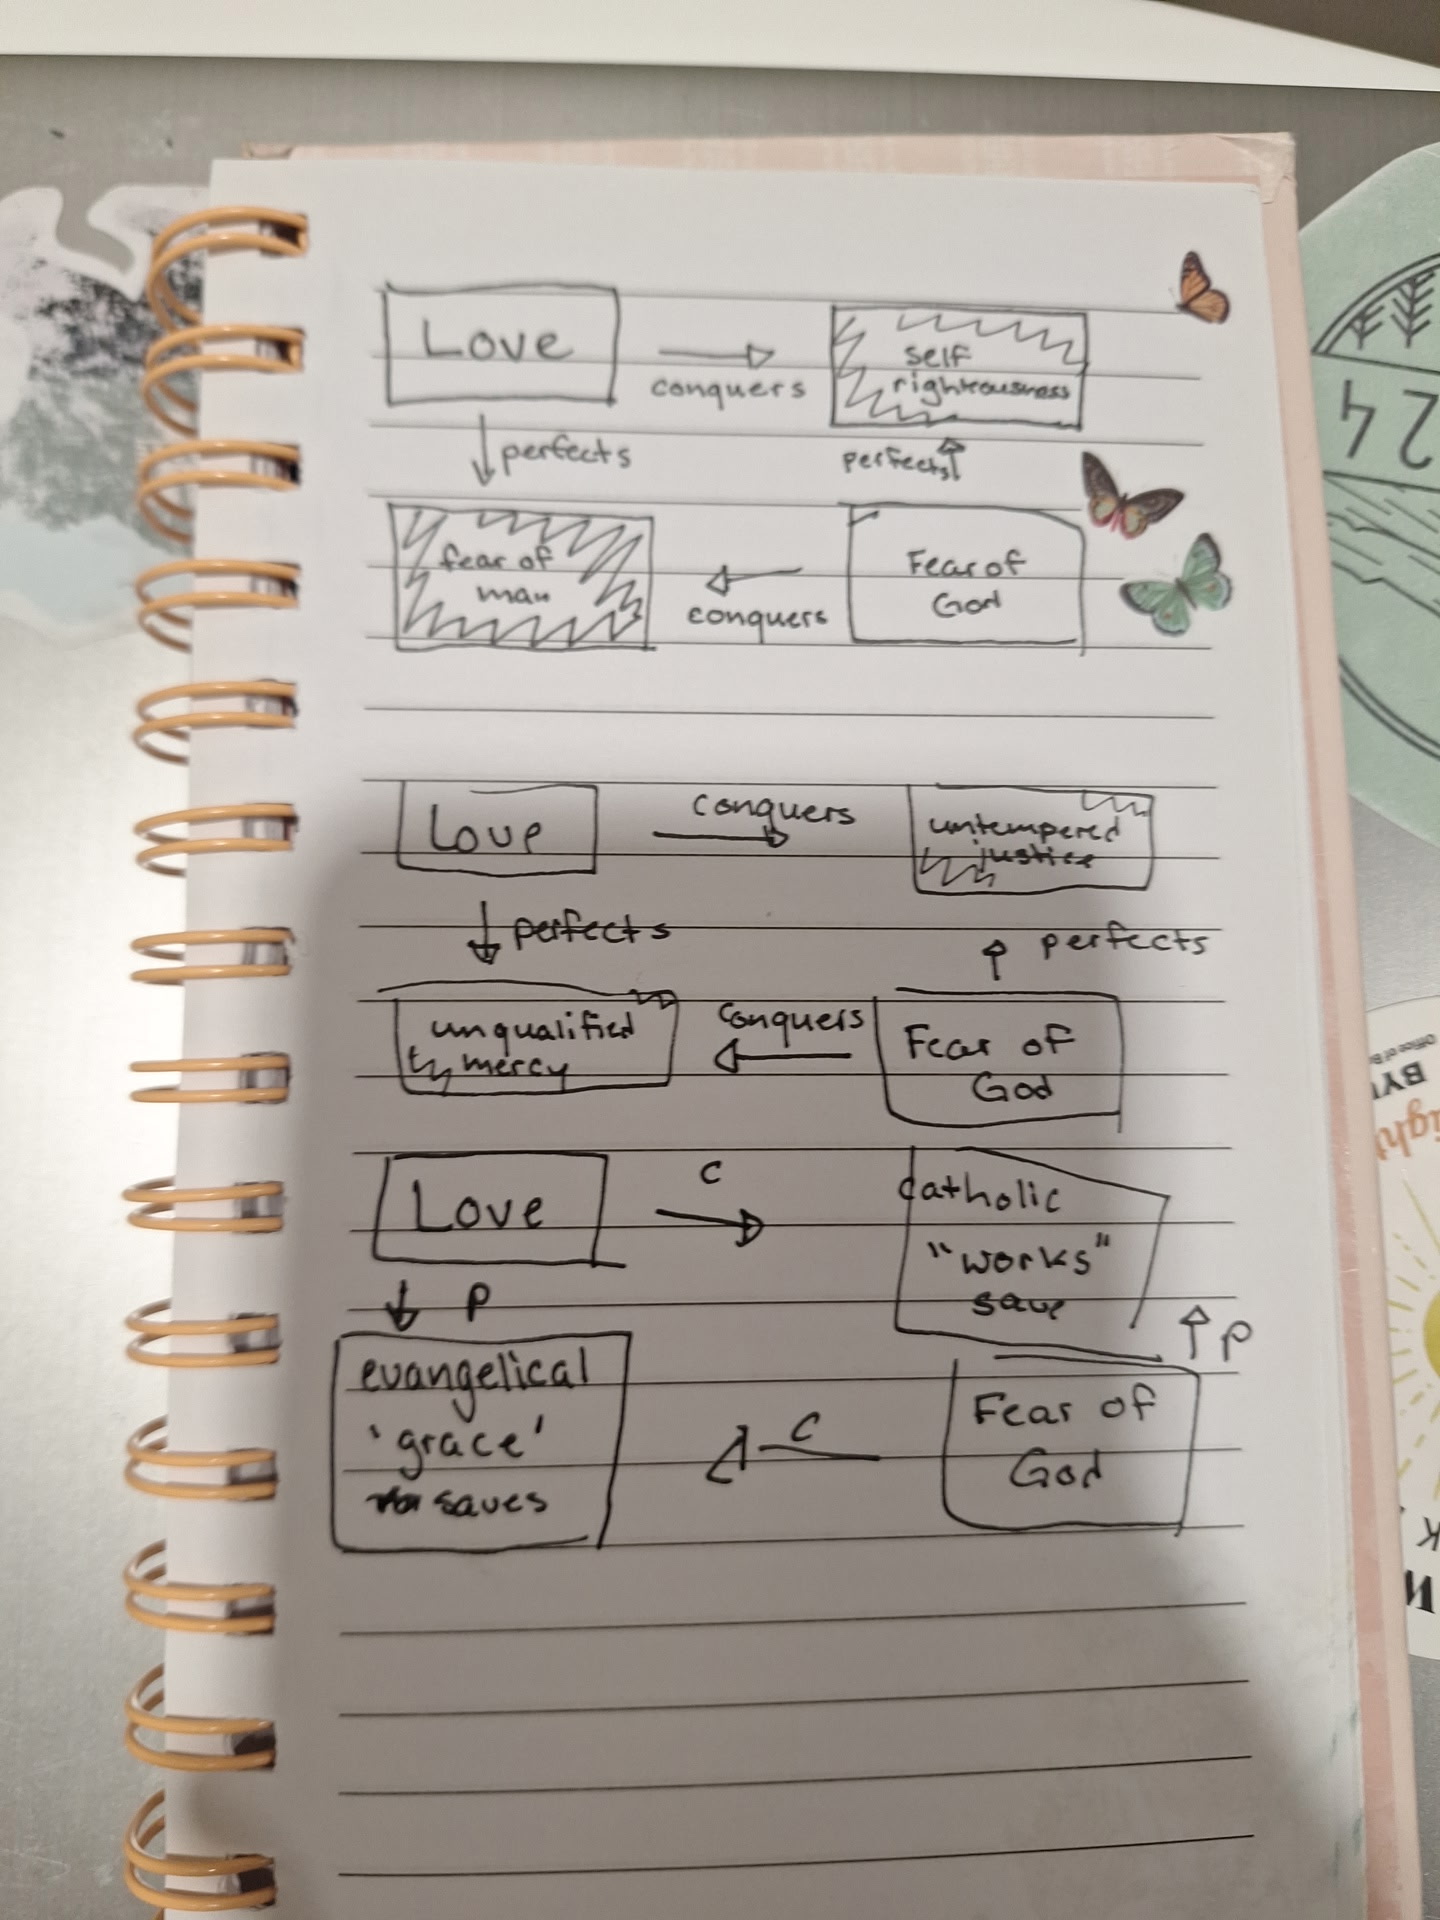 Love
conquers
self
righteousness
perfects
perfects
fear of
man
conquers
Fear of
God
24
Love
Conquers
untempered
justice
perfects
perfects
unqualified
mercy
Conquers
Fear of
God
Love
C
Catholic
"works"
save
P
P
evangelical
'grace'
saves
C
Fear of
God